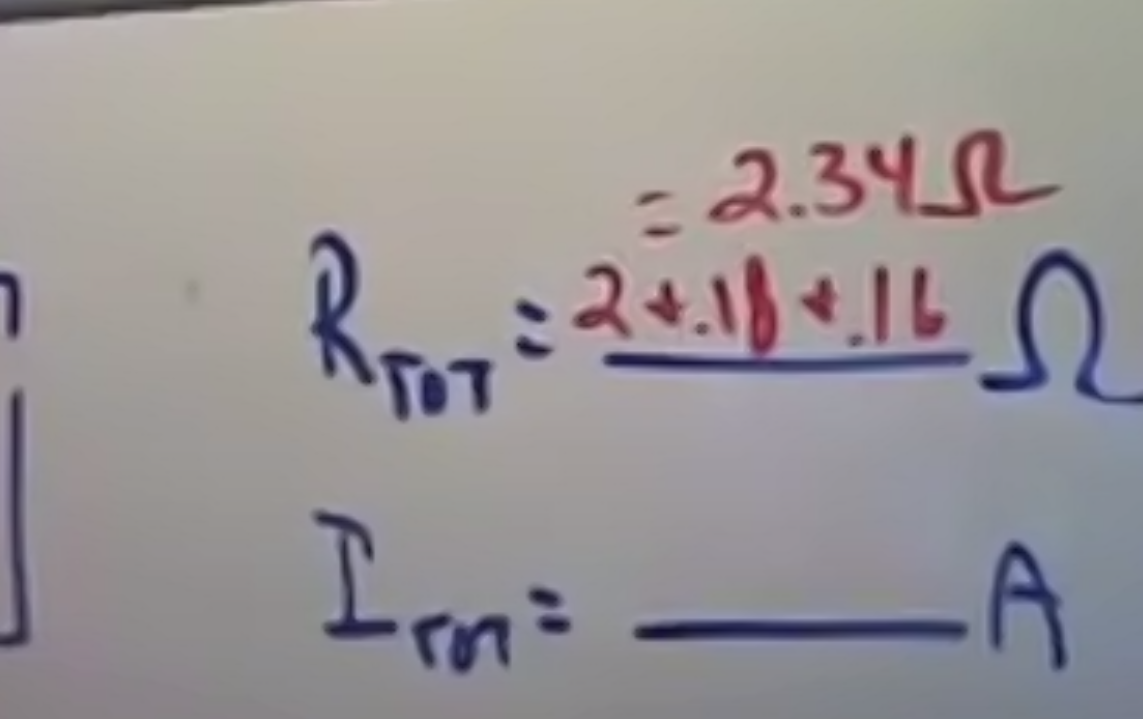 = 2.34Ω
R_TOT = 2 + .18 + .16 Ω
I_TOT = ____ A